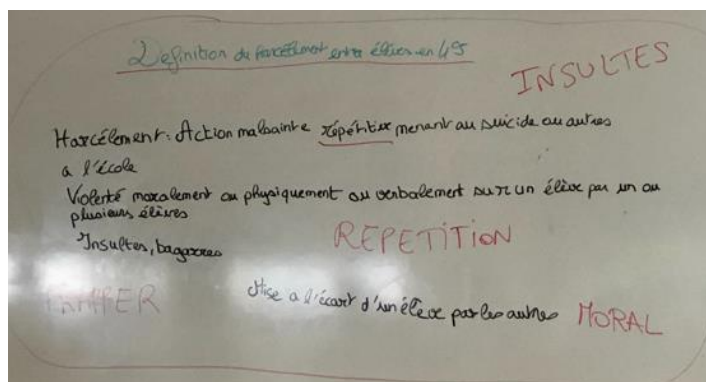 Définition du harcèlement entre élèves en 4e5
INSULTES
Harcèlement : Action malsainte répétitive menant au suicide ou autres
a l'école
Violenté moralement ou physiquement ou verbalement sur un élève par un ou
plusieurs élèves
Insultes, bagarres
REPETITION
Mise a l'écart d'un élève par les autres
MORAL